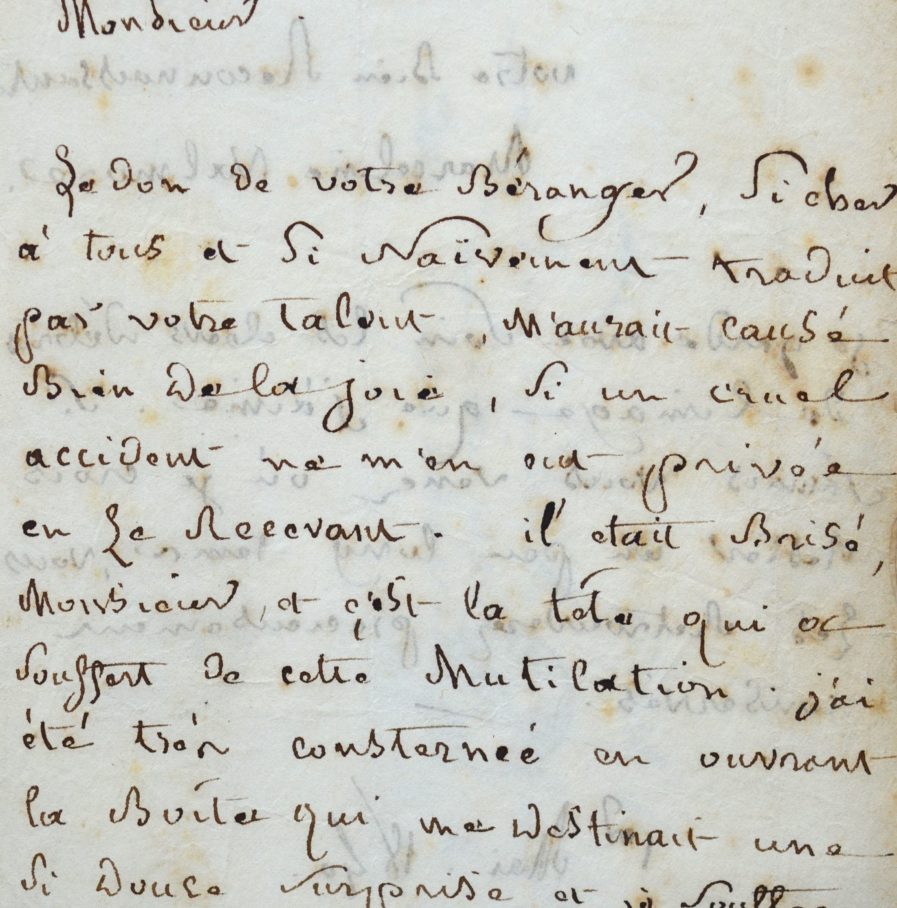 Monsieur.
Le don de votre Béranger, si cher
à tous et si Naïvement traduit
par votre talent, M'aurait causé
Bien de la joie, si un cruel
accident ne m'en eut privée
en Le Recevant. il était Brisé,
Monsieur, et c'est la tête qui a
souffert de cette Mutilation. j'ai
été très consternée en ouvrant
la Boîte qui me destinait une
si Douce surprise et je